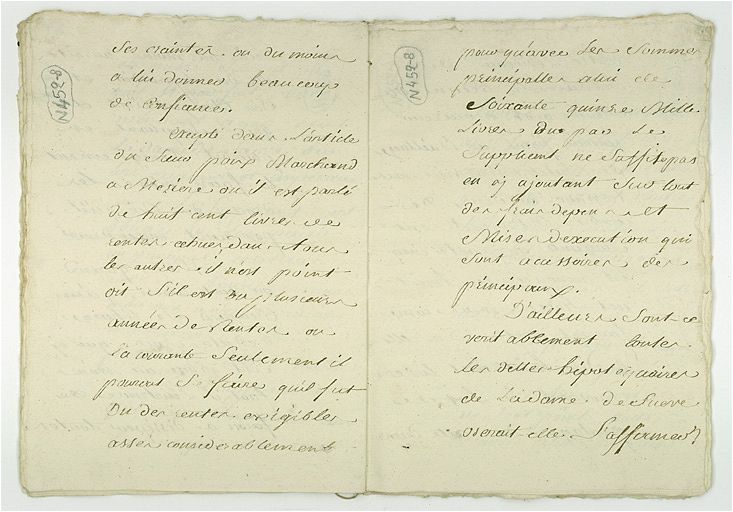 N452-8
ses craintes. ou du moins
a lui donner beaucoup
de confiance.
excepté dans l'article
du Sieur poix Marchand
a Mesiere ou il est parlé
de huit cent livres de
rentes dans tous
les autres il n'est point
dit S'il est du plusieurs
années de rentes ou
la courante Seulement il
pourrait Se faire qu'il fut
Du des rentes exigibles
assés considerablement
N452-8
pour qu'avec les Sommes
principalles a lui de
Soixante quinze Mille
Livres Du par le
Supplient ne Suffit pas
en y ajoutant Sur tout
des frais depens et
Mises d'execution qui
Sont accessoires des
principaux.
D'ailleurs Sont ce
veritablement toutes
les dettes hipotequaires
de La dame de
oserait-elle l'affirmer?